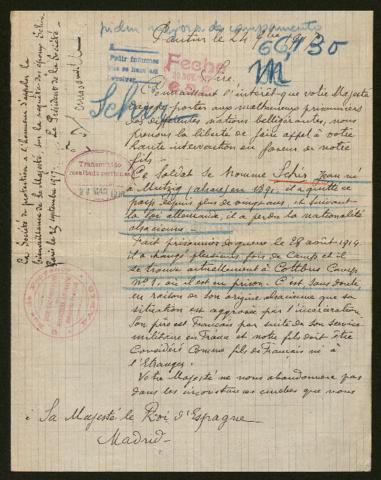 piden mejora de campamento
Pantin le 24
66930
Prière informer
Fecha
Sire,
Connaissant l'intérêt que votre Majesté
daigne porter aux malheureux prisonniers
des différentes nations belligérantes, nous
prenons la liberté de faire appel à votre
haute intervention en faveur de notre
fils.
Ce soldat se nomme Schir Jean né
à Mutzig (alsace) en 1891, il a quitté ce
pays depuis plus de onze ans, et suivant
la loi allemande, il a perdu la nationalité
alsacienne.
Fait prisonnier de guerre le 28 août 1914
il a changé plusieurs fois de Camp et il
se trouve actuellement à Cottbus Camp
No 1, où il est en prison. C'est sans doute,
en raison de son origine alsacienne que sa
situation est aggravée par l'incarcération.
Son père est Français par suite de son service
militaire en France et notre fils doit être
Considéré Comme fils de Français né à
l'Etranger.
Votre Majesté ne nous abandonnera pas
dans les circonstances cruelles que nous
à Sa Majesté le Roi d'Espagne
Madrid
La Société de protection a l'honneur d'appeler la
bienveillance de Sa Majesté sur la requête des époux Schir
Paris le 25 septembre 1917. Le Président de la Société